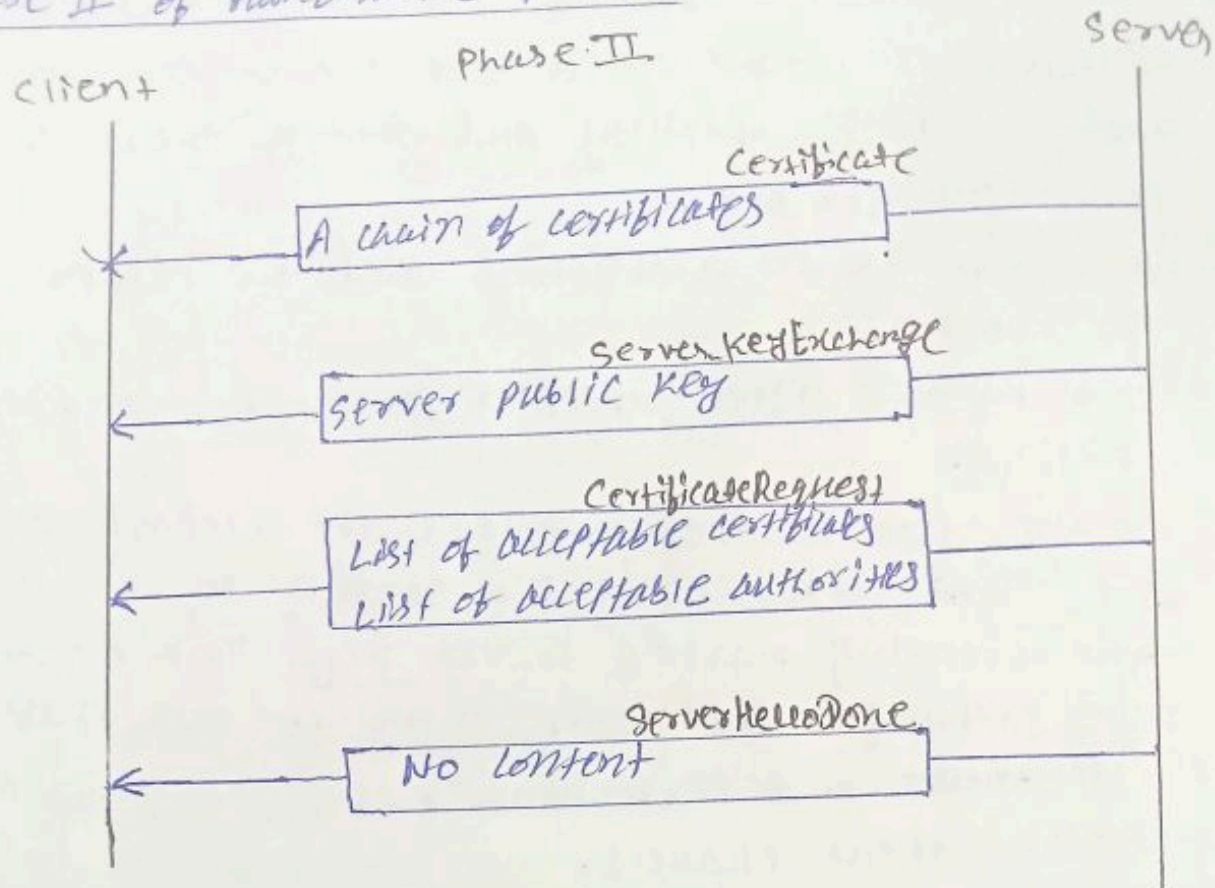 II of
Phase-II
Client
Server
Certificate
A chain of certificates
ServerKeyExchange
Server public key
CertificateRequest
List of acceptable certificates
List of acceptable authorities
ServerHelloDone
No content